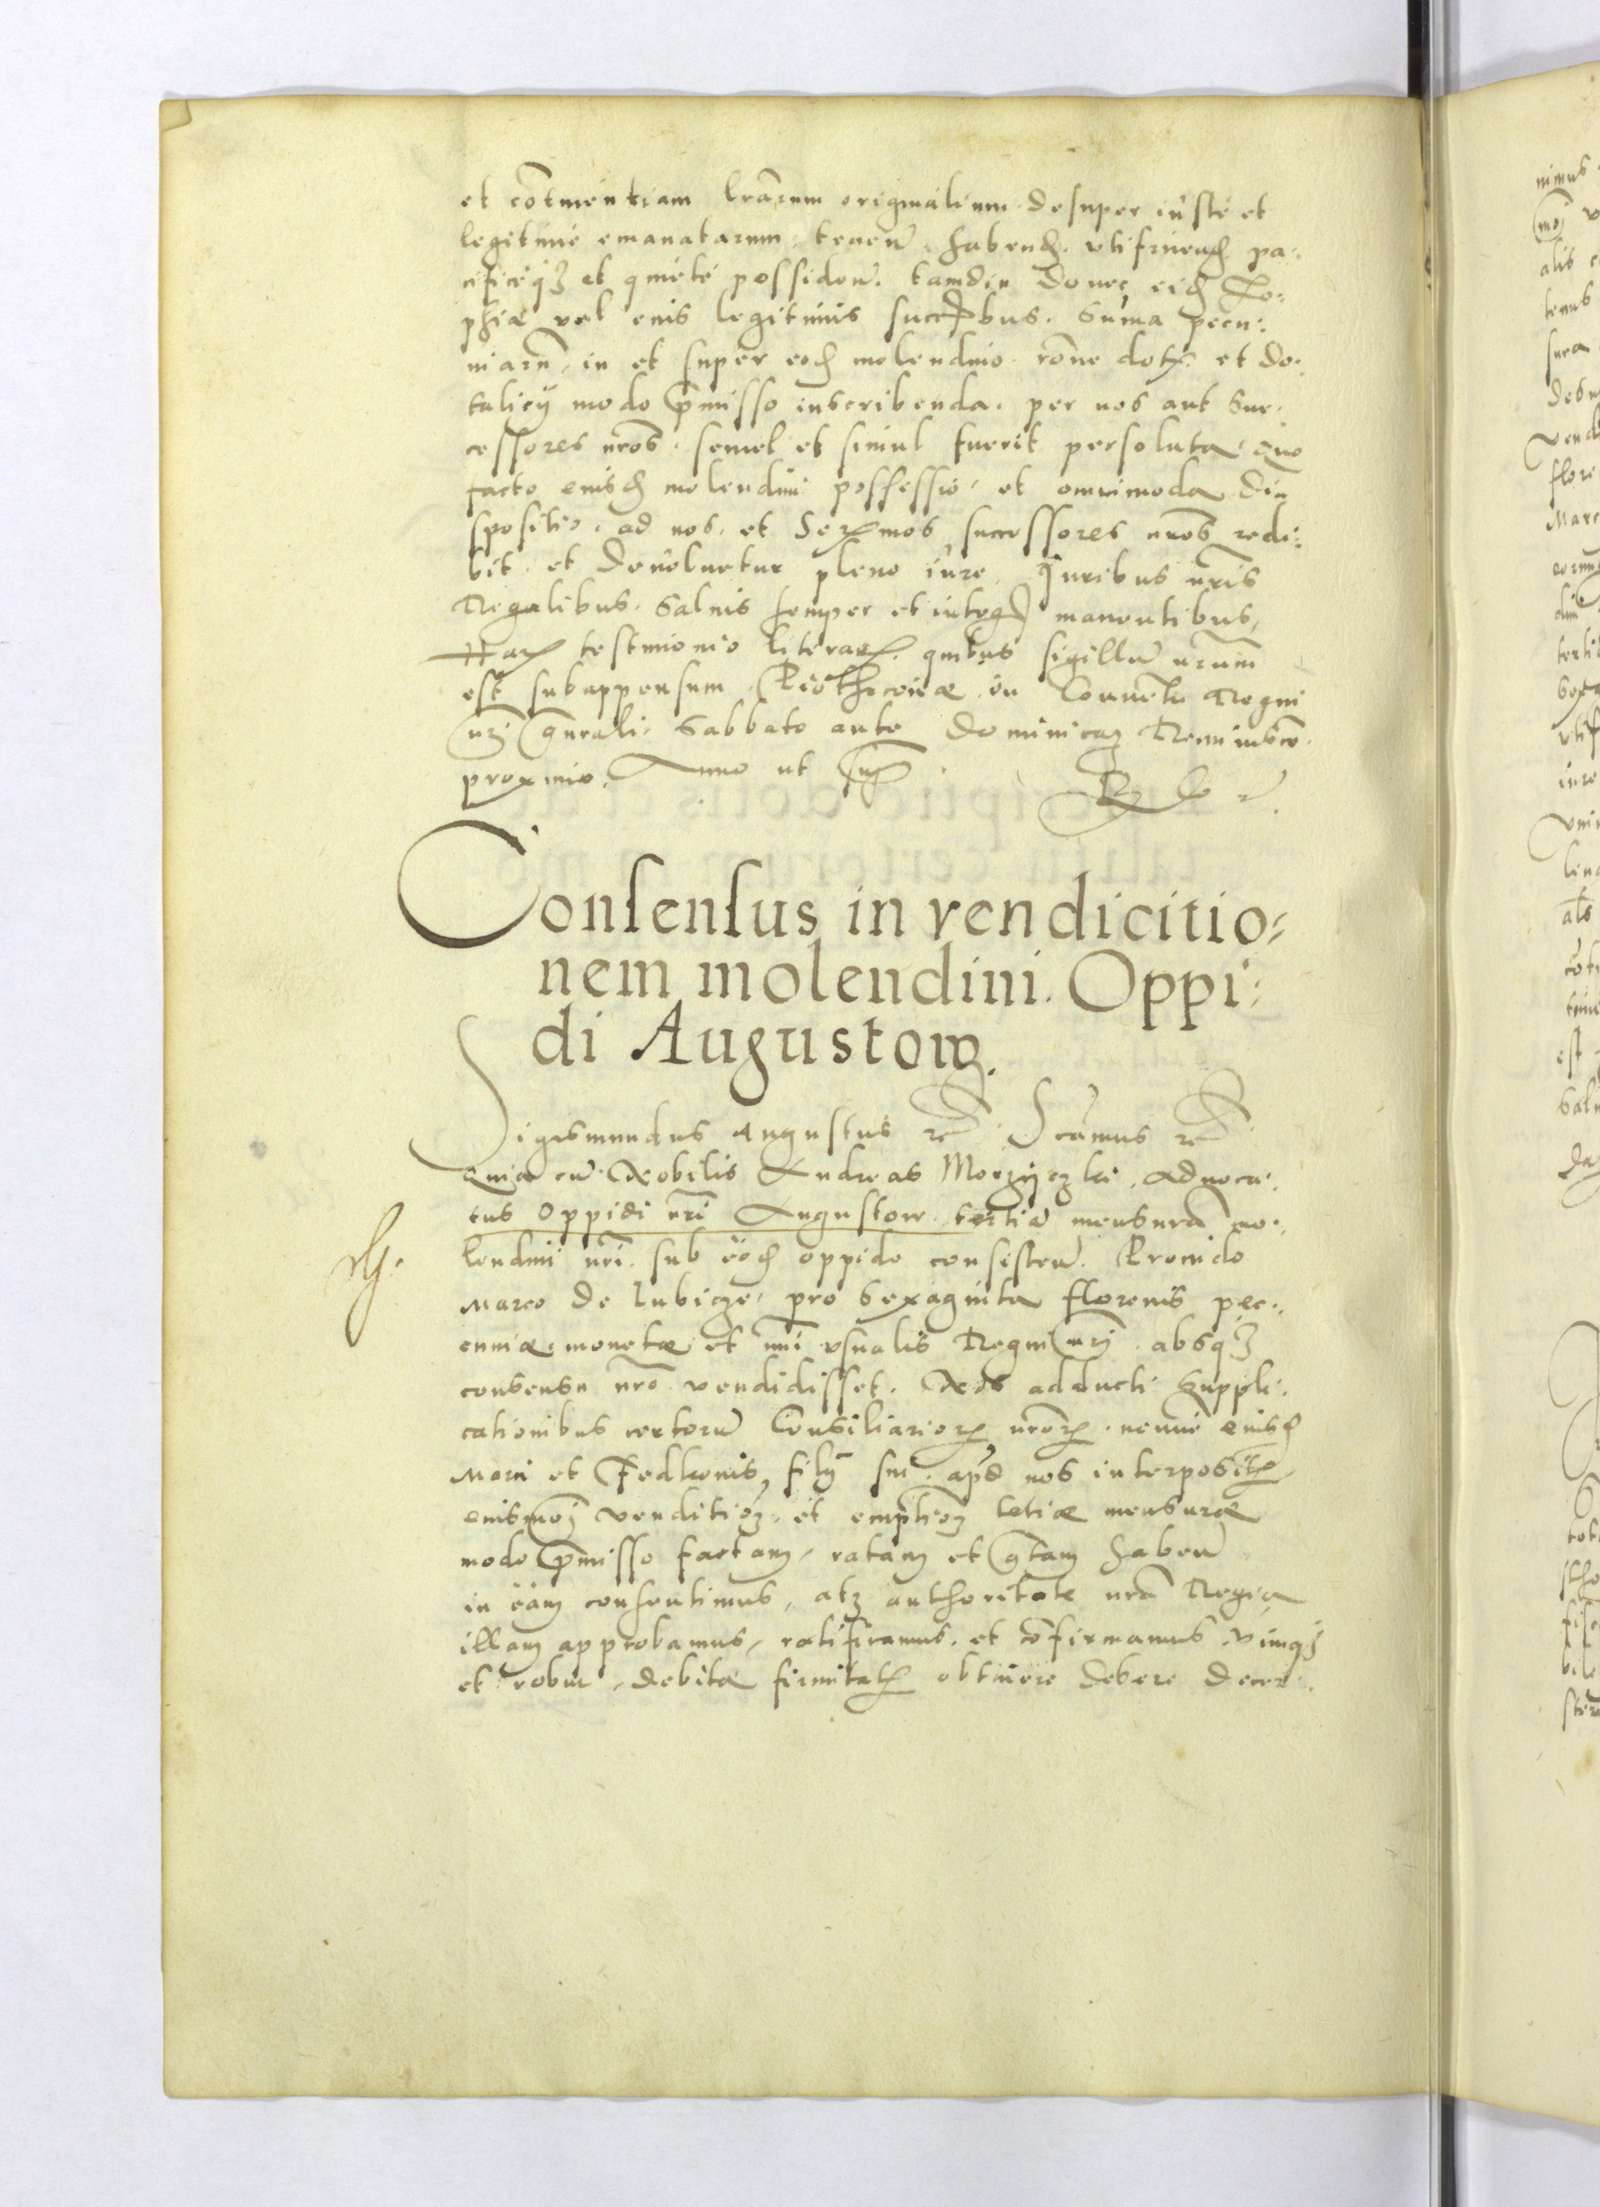 et cōtinentiam lrārum originalium desuper iuste et
legitime emanatarum, teneñ. habenḑ. vtifruenḑ. pa-
cificeqз et quiete possideñ. tamdiu donec eiḑ Zo-
phiæ vel eius legitimis succribus. Suma pecu-
niarū, in et super eoḑ molendino rōne dotꝭ et do-
talicÿ modo p̄misso inscribenda. per nos aut Suc-
cessores nrōs semel et simul fuerit persoluta. Quo
facto eiusḑ molendini possessio, et omnimoda di-
spositio, ad nos et Serᵐos successores nrōs redi-
bit et deuoluetur pleno iure. Iuribus nrīs
Regalibus Saluis semper et integꝭ manentibus,
Harꝝ testimonio literarꝝ. quibus sigillū nrūm
est subappensum. Piotrcouiæ in Conuetu Regni
nrī gn̄rali. Sabbato ante dominicaз Reminiscē.
proximo. Anno ut supꝭ.
Consensus in vendicitio-
nem molendini. Oppi-
di Augustow.
Sigismundus Augustus rē Scāmus rē
Quia cū Nobilis Andreas Moczÿczki, aduoca-
tus Oppidi nrī Augustow tertiā mensurā mo-
lendini nrī sub eoḑ oppido consisteñ. Prouido
Marco de lubicze, pro sexaginta florenis pec-
cuniæ monetæ et nūi vsualis Regni nrī absqз
consensu nrō vendidisset. Nos adducti suppli-
cationibus certorū Consiliariorꝝ nrōrꝝ. necnō eiusḑ
Marci et Fedkonis filÿ sui apd nos interpositꝭ
eiusmōi venditioз. et emptioз tertiæ mensuræ
modo p̄misso factam, ratam et gratam habeñ
in eam consentimus, atз authoritate nrā Regia
illam approbamus, ratificamus. et cōfirmamus. vimqз
et robur, debitæ firmitatꝭ obtinere debere decer-